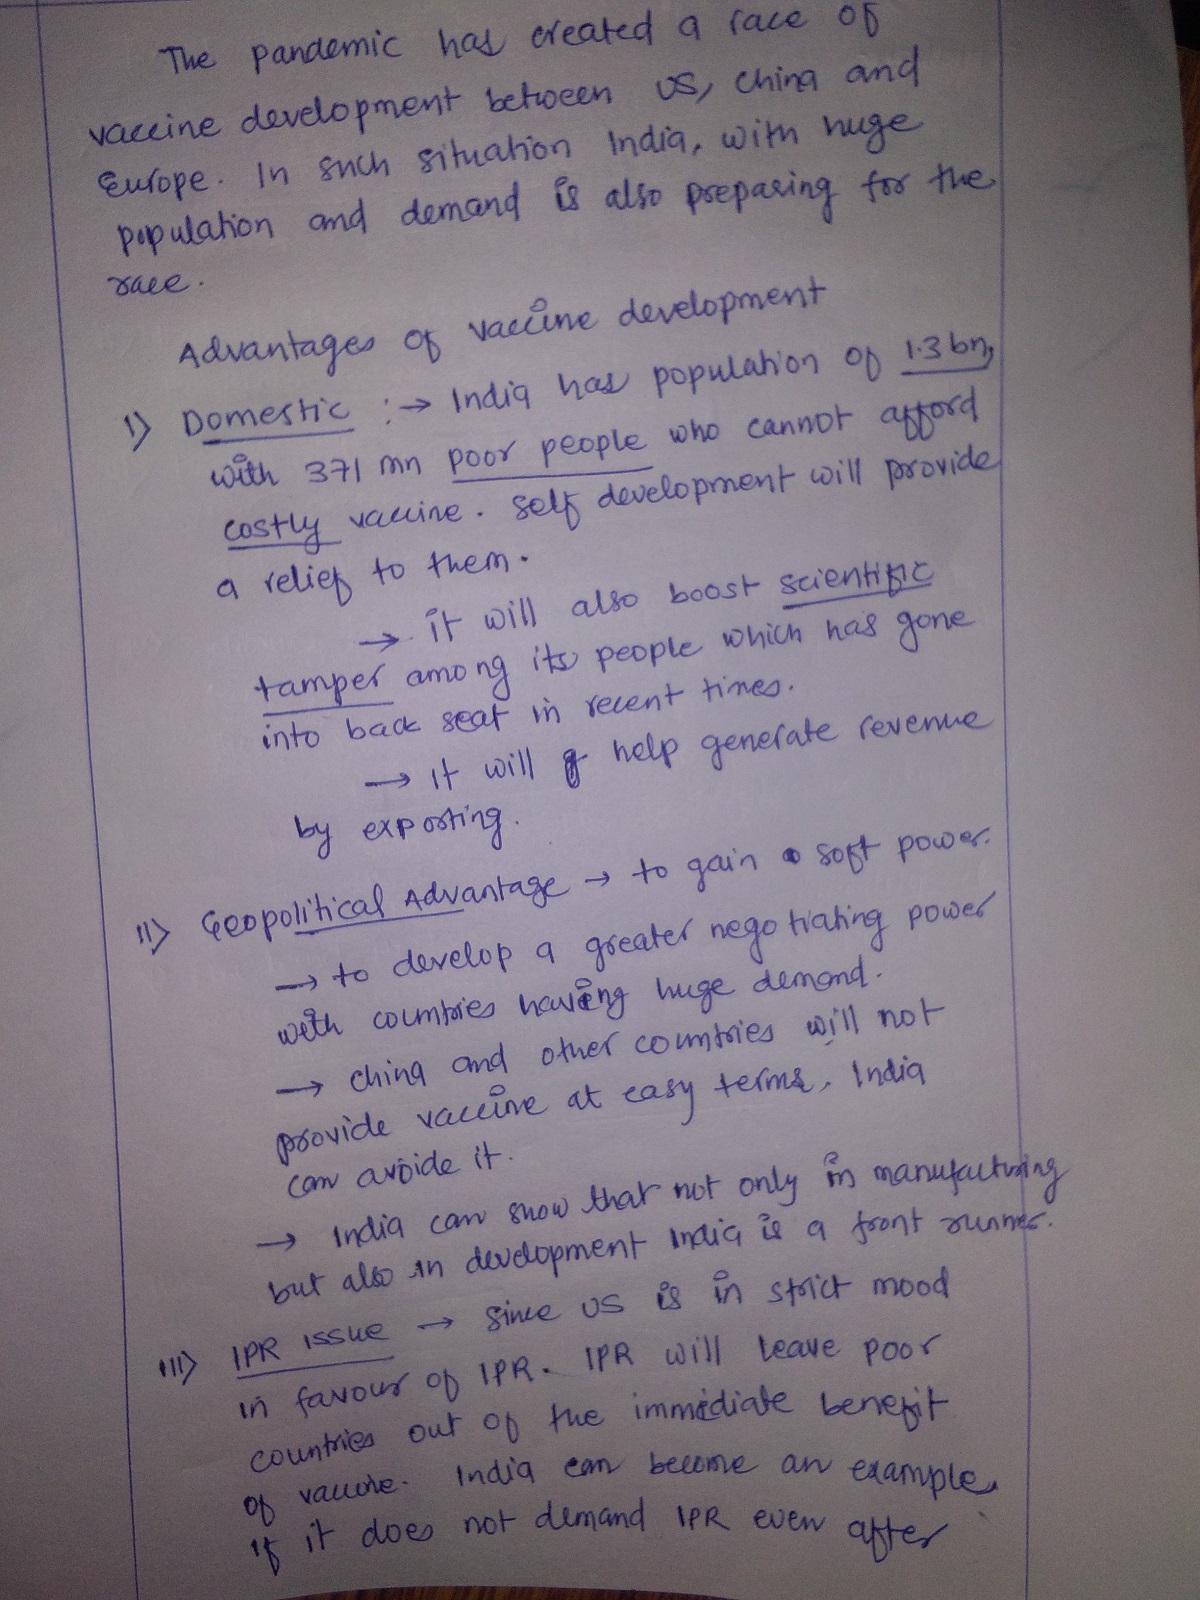 The pandemic has created a race of
vaccine development between US, China and
Europe. In such situation India, with huge
population and demand is also preparing for the
race.
Advantages of vaccine development
I) Domestic :→ India has population of 1.3 bn,
with 371 mn poor people who cannot afford
costly vaccine. Self development will provide
a relief to them.
→ it will also boost scientific
tamper among its people which has gone
into back seat in recent times.
→ it will help generate revenue
by exporting.
II) Geopolitical Advantage → to gain soft power.
→ to develop a greater negotiating power
with countries having huge demand.
→ China and other countries will not
provide vaccine at easy terms, India
can avoide it.
→ India can show that not only in manufacturing
but also in development India is a front runner.
III) IPR issue → Since US is in strict mood
in favour of IPR. IPR will leave poor
countries out of the immediate benefit
of vaccine. India can become an example,
if it does not demand IPR even after